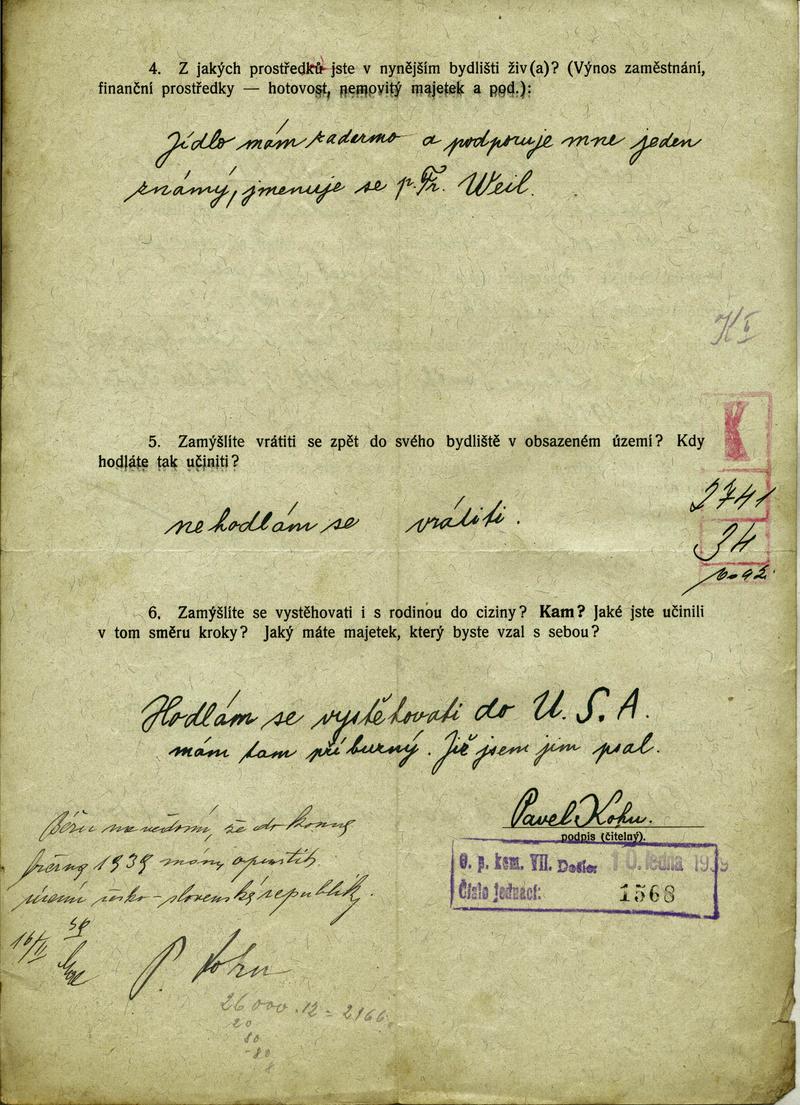 4. Z jakých prostředků jste v nynějším bydlišti živ(a)? (Výnos zaměstnání,
finanční prostředky — hotovost, nemovitý majetek a pod.):
Jídlo mám zadarmo a podporuje mne jeden
známý, jmenuje se p. Fr. Weil.
5. Zamýšlíte vrátiti se zpět do svého bydliště v obsazeném území? Kdy
hodláte tak učiniti?
2741
nehodlám se vrátiti.
34
6. Zamýšlíte se vystěhovati i s rodinou do ciziny? Kam? Jaké jste učinili
v tom směru kroky? Jaký máte majetek, který byste vzal s sebou?
Hodlám se vystěhovati do U.S.A.
mám tam příbuzný. Již jsem jim psal.
Pavel Kohn.
podpis (čitelný).
Béru na vědomí, že do konce
března 1939 mám opustiti
území česko-slovenské republiky.
P. Kohn
16/II 39
P. p. kom. VII. Došlo: 10. ledna 1939
Číslo jednací: 1568
26000.12 = 2166
20
80
-80
8